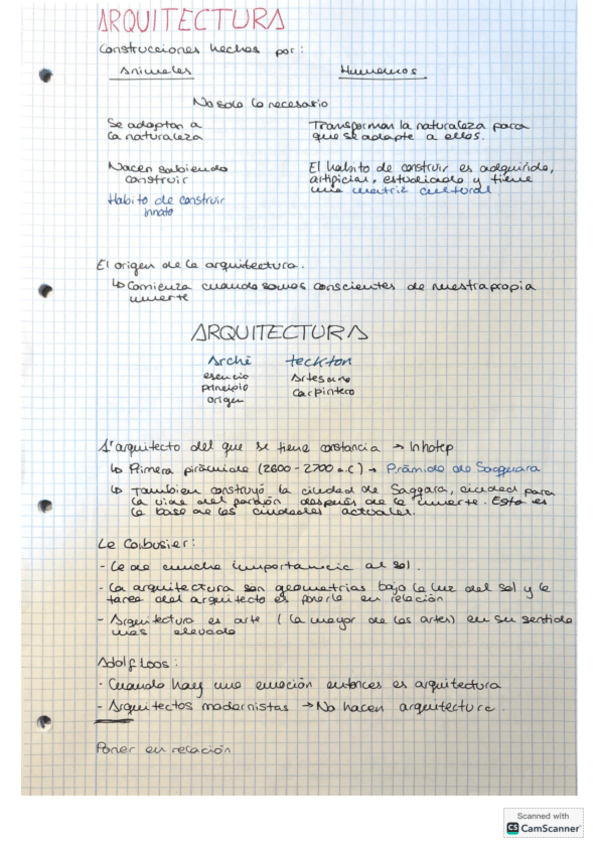 ARQUITECTURA
Construcciones hechas por:
Animales Humanos
No solo lo necesario
Se adaptan a Transforman la naturaleza para
la naturaleza que se adapte a ellos.
Nacen sabiendo El habito de construir es adquirido,
construir artificial, estudiado y tiene
Habito de construir una matriz cultural
innato
El origen de la arquitectura.
↳ Comienza cuando somos conscientes de nuestra propia
muerte
ARQUITECTURA
Archi teckton
esencia Artesano
principio Carpintero
origen
1er arquitecto del que se tiene constancia → Inhotep
↳ Primera pirámide (2600-2700 a.C) → Pirámide de Saqquara
↳ Tambien construyó la ciudad de Saggara, ciudad para
la vida del después de la muerte. Esto es
la base de las ciudades actuales.
Le Corbusier:
- Le da mucha importancia al sol.
- La arquitectura son geometrias bajo la luz del sol y la
tarea del arquitecto es ponerla en relación
- Arquitectura es arte (la mayor de las artes) en su sentido
más elevado
Adolf Loos:
- Cuando hay una emoción entonces es arquitectura
- Arquitectos modernistas → No hacen arquitectura.
Poner en relación
Scanned with
CS CamScanner